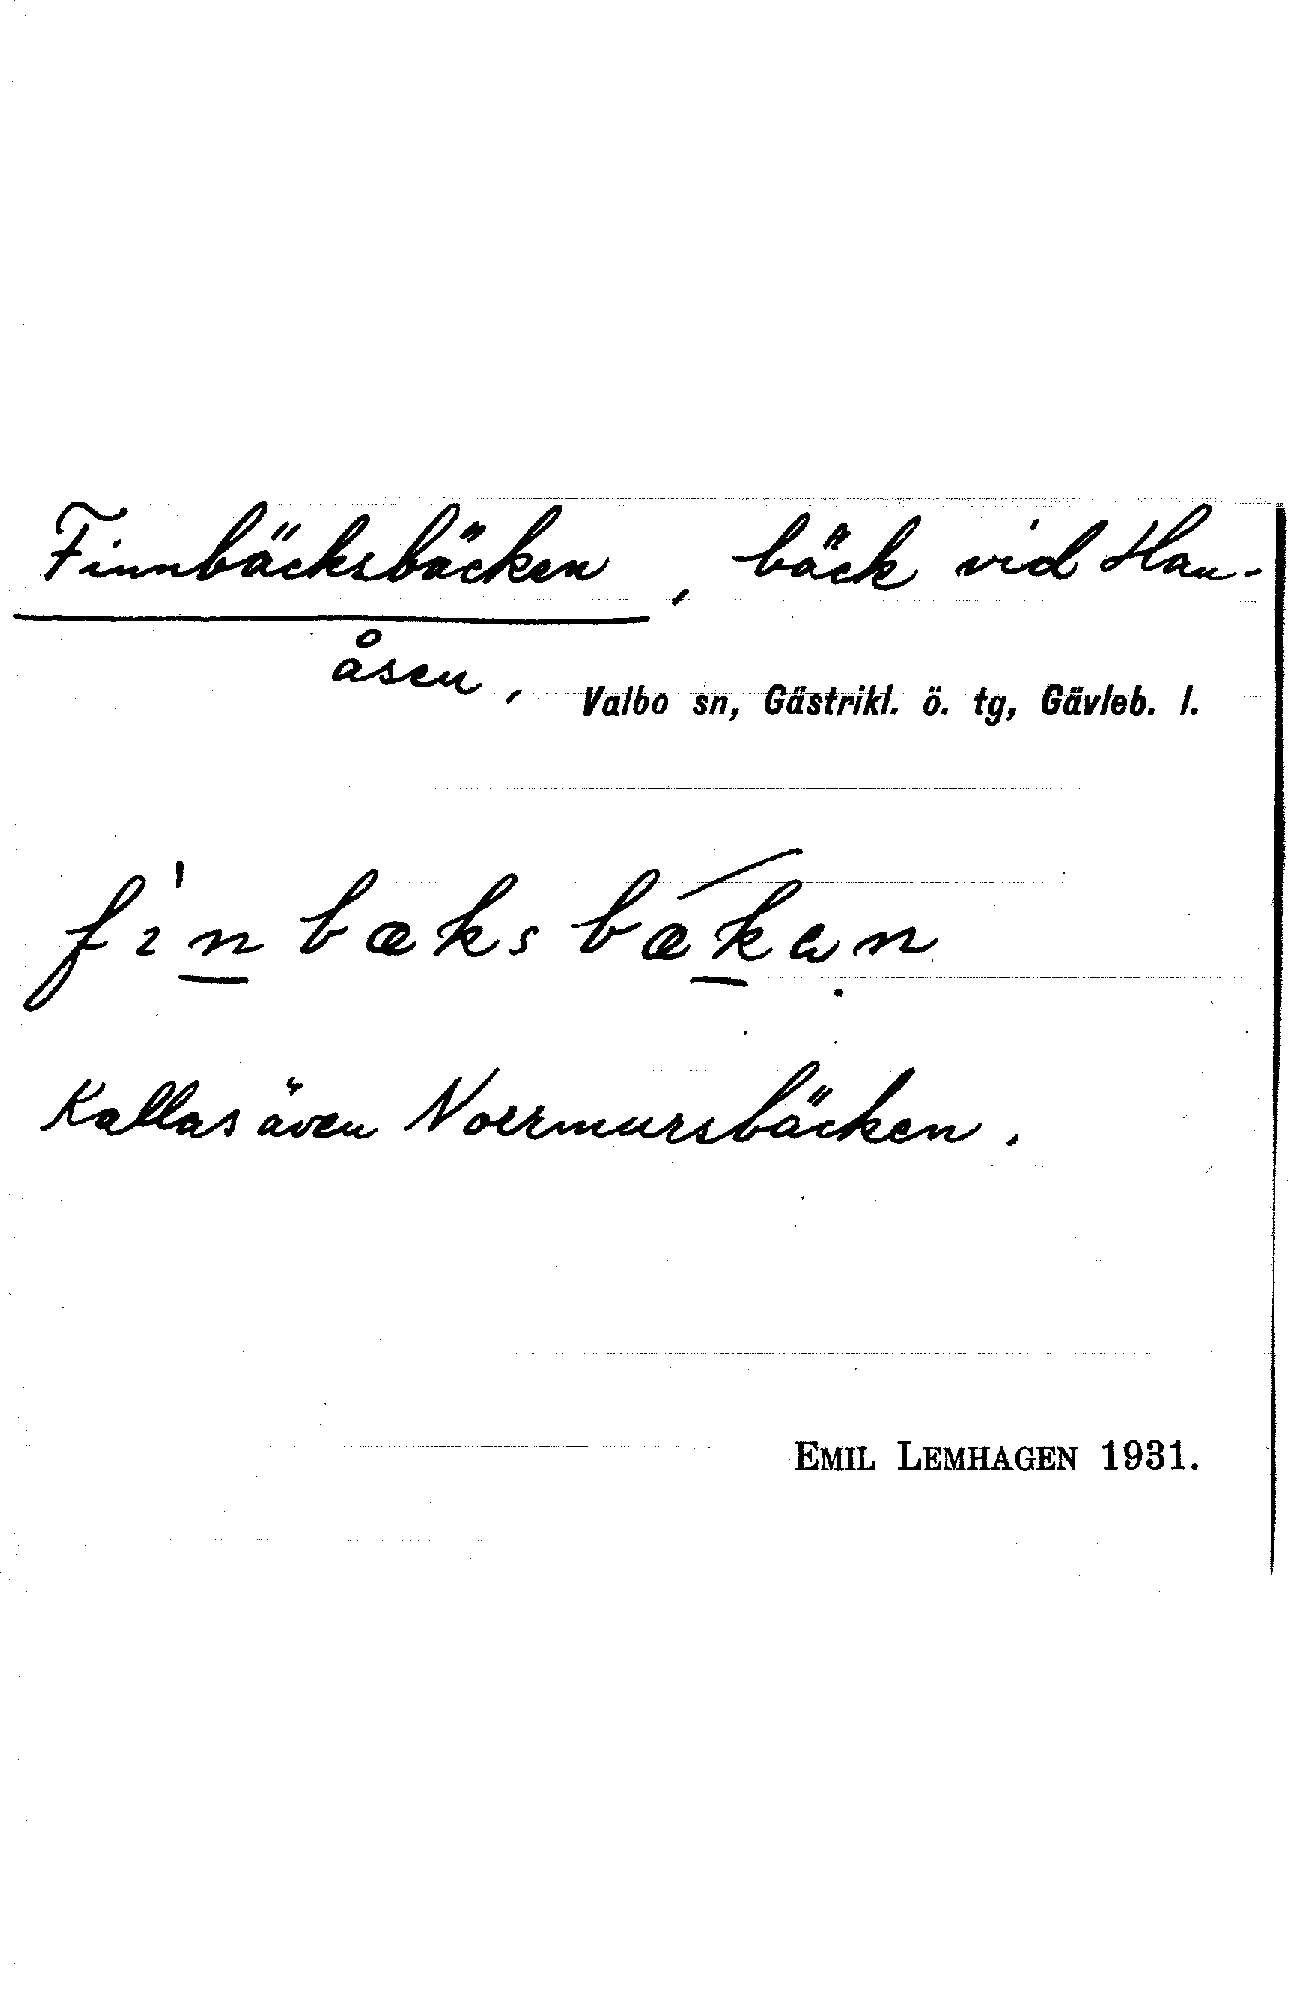 Finnbäcksbäcken, bäck vid Hau-
åsen, Valbo sn, Gästrikl. ö. tg, Gävleb. l.
fìnbæksbǽkɐn
Kallas även Norrmursbäcken.
EMIL LEMHAGEN 1931.